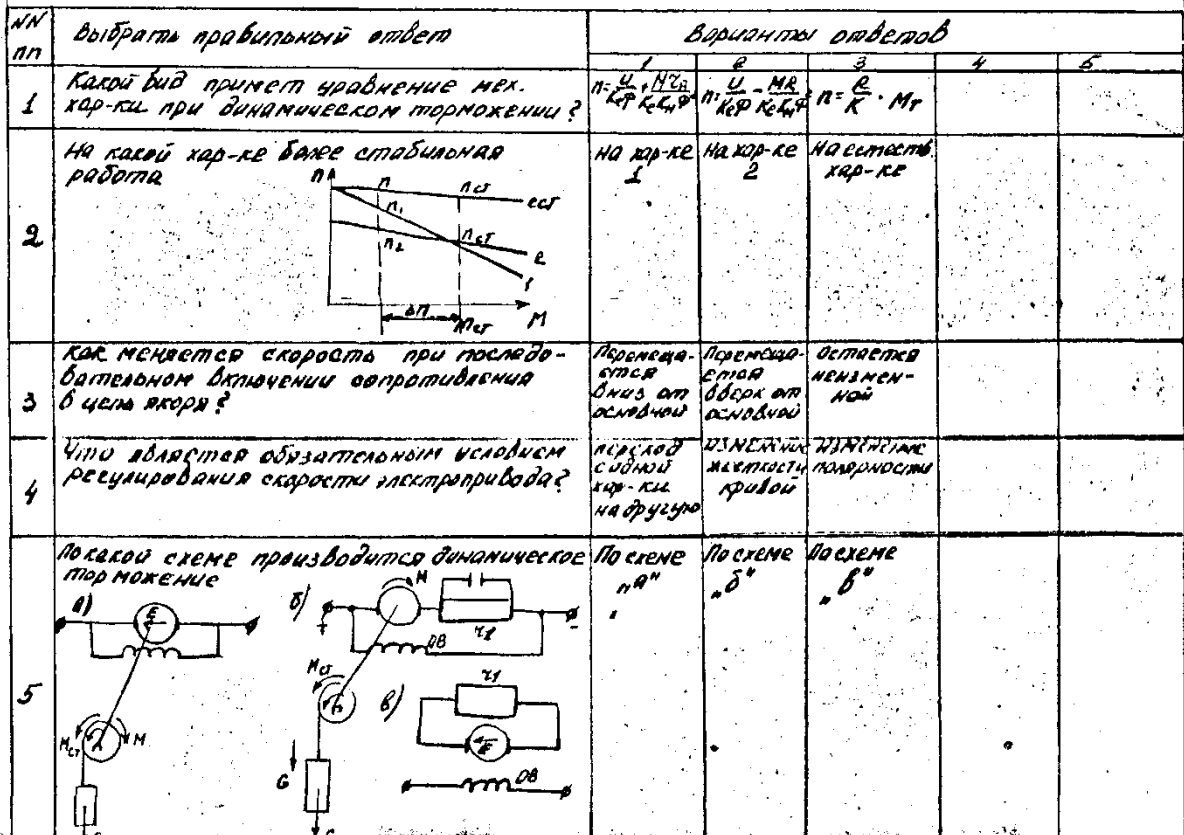 NN пп
Выбрать правильный ответ
Варианты ответов
1 2 3 4 5
1
Какой вид примет уравнение мех.
хар-ки при динамическом торможении?
n = R/K · Mт
2
На какой хар-ке более стабильная
работа
n
n nст ест
n1
n2 nст
2
1
Δn mст M
На хар-ке
1
На хар-ке
2
На естеств
хар-ке
3
Как меняется скорость при последо-
вательном включении сопротивления
в цепь якоря?
Перемеща-
ется
вниз от
основной
Перемеща-
ется
вверх от
основной
Остается
неизмен-
ной
4
Что является обязательным условием
регулирования скорости электропривода?
переход
с одной
хар-ки
на другую
изменение
жесткости
кривой
изменение
полярности
5
По какой схеме производится динамическое
торможение
а)
E
Mст M
б)
M
+ -
r1
ОВ
Mст
G
в)
r1
E
ОВ
По схеме
„а"
По схеме
„б"
По схеме
„в"